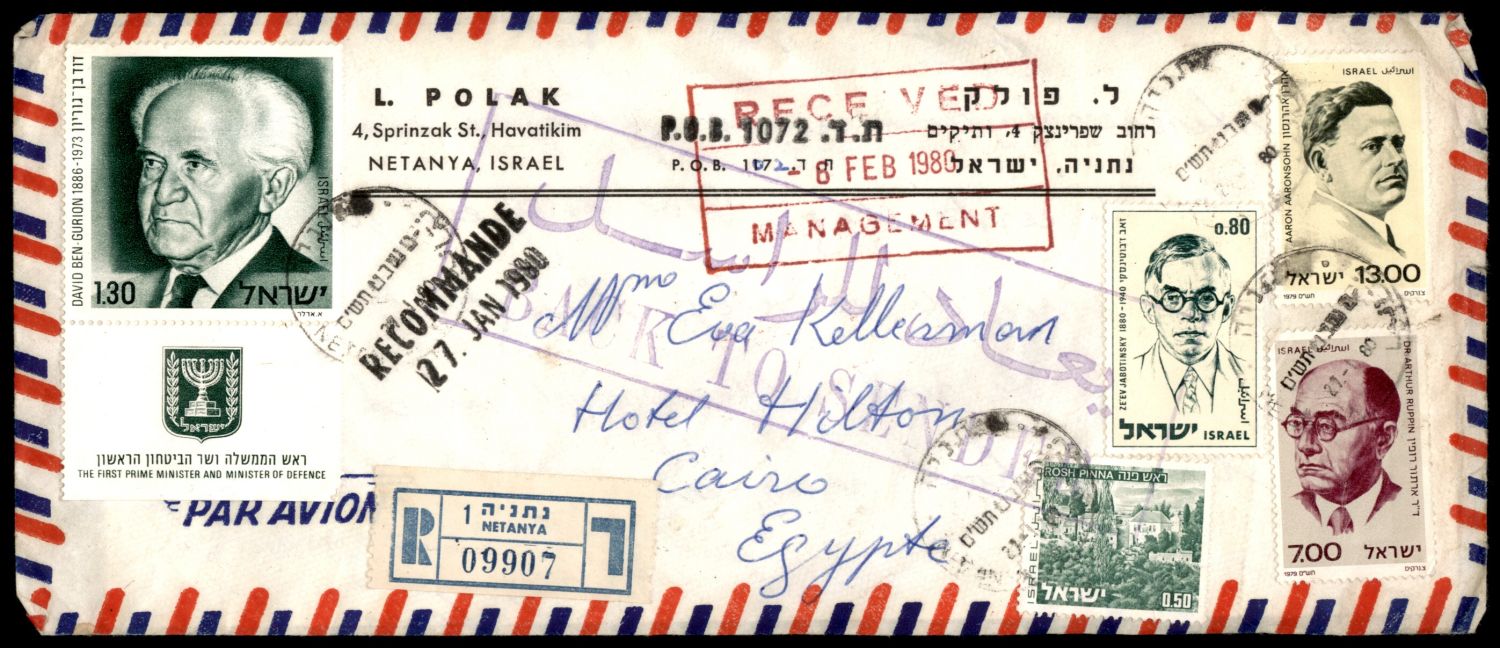 דוד בן-גוריון
DAVID BEN-GURION 1886-1973
ISRAEL اسرائيل
1.30 ישראל
א. אדלר
ישראל
ראש הממשלה ושר הביטחון הראשון
THE FIRST PRIME MINISTER AND MINISTER OF DEFENCE
L. POLAK
4, Sprinzak St., Havatikim
NETANYA, ISRAEL
P.O.B. 1072 ת.ד.
P.O.B. 1072 ת.ד.
ל. פולק
רחוב שפרינצק 4, ותיקים
נתניה, ישראל
RECE VED
- 8 FEB 1980
MANAGEMENT
RECOMMANDE
27. JAN 1980
يعاد للراسل
BACK TO SENDER
Mme Eva Kellerman
Hotel Hilton
Cairo
Egypte
PAR AVION
R 1 נתניה
NETANYA
09907
ISRAEL اسرائيل
אהרון אהרונסון
AARON AARONSOHN
ישראל 13.00
1979 תשל"ט צנרקיס
0.80
זאב ז'בוטינסקי
ZEEV JABOTINSKY 1880-1940
ישראל ISRAEL
ISRAEL اسرائيل
DR ARTHUR RUPPIN
ד"ר ארתור רופין
7.00 ישראל
1979 תשל"ט צנרקיס
ROSH PINNA ראש פנה
ISRAEL
ישראל 0.50